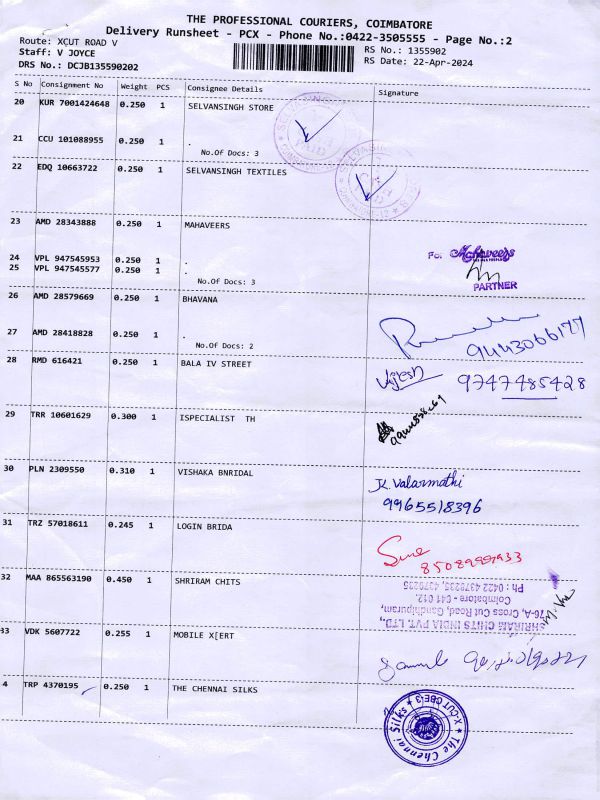 THE PROFESSIONAL COURIERS, COIMBATORE
Delivery Runsheet - PCX - Phone No.:0422-3505555 - Page No.:2
Route: XCUT ROAD V
RS No.: 1355902
Staff: V JOYCE
RS Date: 22-Apr-2024
DRS No.: DCJB135590202
S No Consignment No Weight PCS Consignee Details Signature
20 KUR 7001424648 0.250 1 SELVANSINGH STORE
21 CCU 101088955 0.250 1 .
No.Of Docs: 3
22 EDQ 10663722 0.250 1 SELVANSINGH TEXTILES
23 AMD 28343888 0.250 1 MAHAVEERS
24 VPL 947545953 0.250 1 .
25 VPL 947545577 0.250 1 .
No.Of Docs: 3
For Mahaveers
PARTNER
26 AMD 28579669 0.250 1 BHAVANA
27 AMD 28418828 0.250 1 .
No.Of Docs: 2
9443066177
28 RMD 616421 0.250 1 BALA IV STREET
Vijesh 9747485428
29 TRR 10601629 0.300 1 ISPECIALIST TH
30 PLN 2309550 0.310 1 VISHAKA BNRIDAL
K. Valarmathi
9965518396
31 TRZ 57018611 0.245 1 LOGIN BRIDA
32 MAA 865563190 0.450 1 SHRIRAM CHITS
SHRIRAM CHITS INDIA PVT. LTD.,
176-A, Cross Cut Road, Gandhipuram,
Coimbatore - 641 012.
Ph : 0422 4379235, 4379235
33 VDK 5607722 0.255 1 MOBILE X[ERT
4 TRP 4370195 0.250 1 THE CHENNAI SILKS
The Chennai Silks X-CUT CBE-3